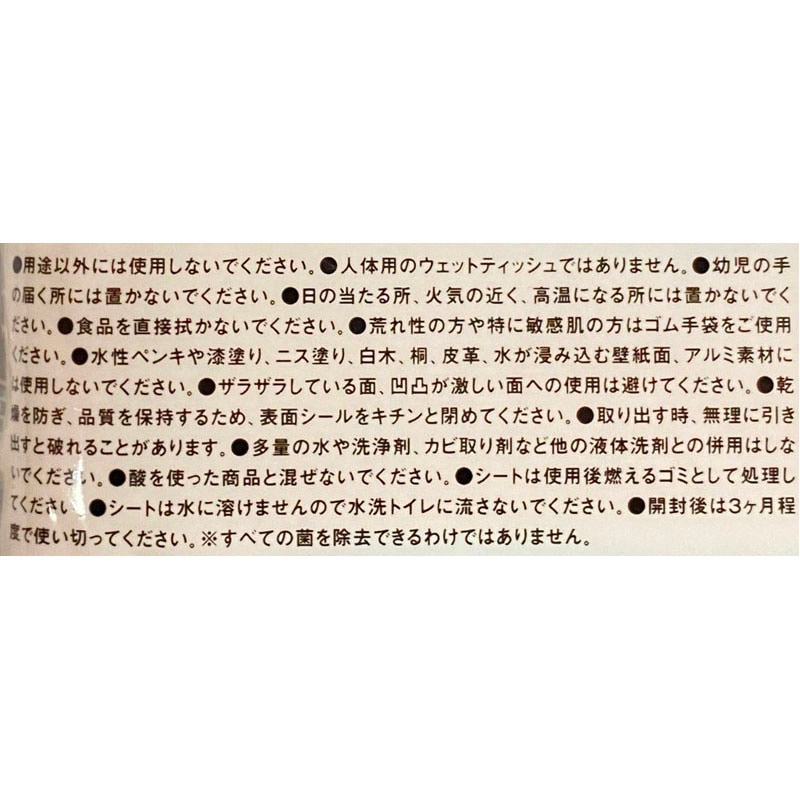 ●用途以外には使用しないでください。●人体用のウェットティッシュではありません。●幼児の手
の届く所には置かないでください。●日の当たる所、火気の近く、高温になる所には置かないでく
ださい。●食品を直接拭かないでください。●荒れ性の方や特に敏感肌の方はゴム手袋をご使用
ください。●水性ペンキや漆塗り、ニス塗り、白木、桐、皮革、水が浸み込む壁紙面、アルミ素材に
は使用しないでください。●ザラザラしている面、凹凸が激しい面への使用は避けてください。●乾
燥を防ぎ、品質を保持するため、表面シールをキチンと閉めてください。●取り出す時、無理に引き
出すと破れることがあります。●多量の水や洗浄剤、カビ取り剤など他の液体洗剤との併用はしな
いでください。●酸を使った商品と混ぜないでください。●シートは使用後燃えるゴミとして処理し
てください。●シートは水に溶けませんので水洗トイレに流さないでください。●開封後は3ヶ月程
度で使い切ってください。※すべての菌を除去できるわけではありません。